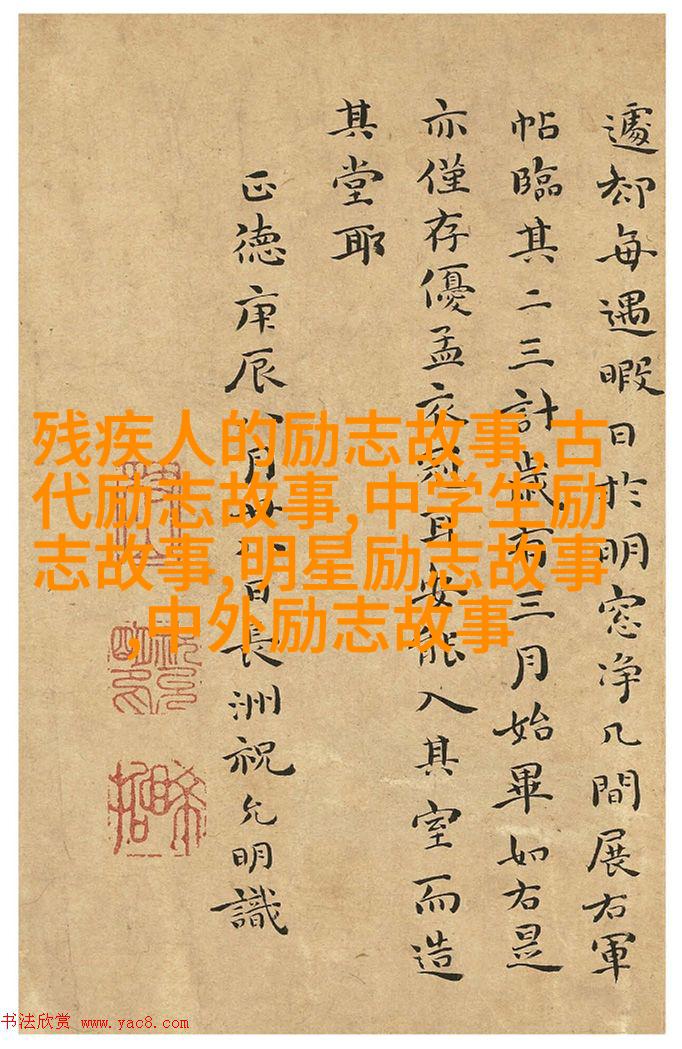 遽却每遇暇日於明窓净几間展右軍
帖臨其二三計歲有三月始畢如右是
亦僅存優孟衣冠耳安能入其室而造
其堂耶
正德庚辰八月廿日長洲祝允明識
残疾人的励志故事,古
代励志故事,中学生励
志故事,明星励志故事
,中外励志故事
书法欣赏 www.yac8.com